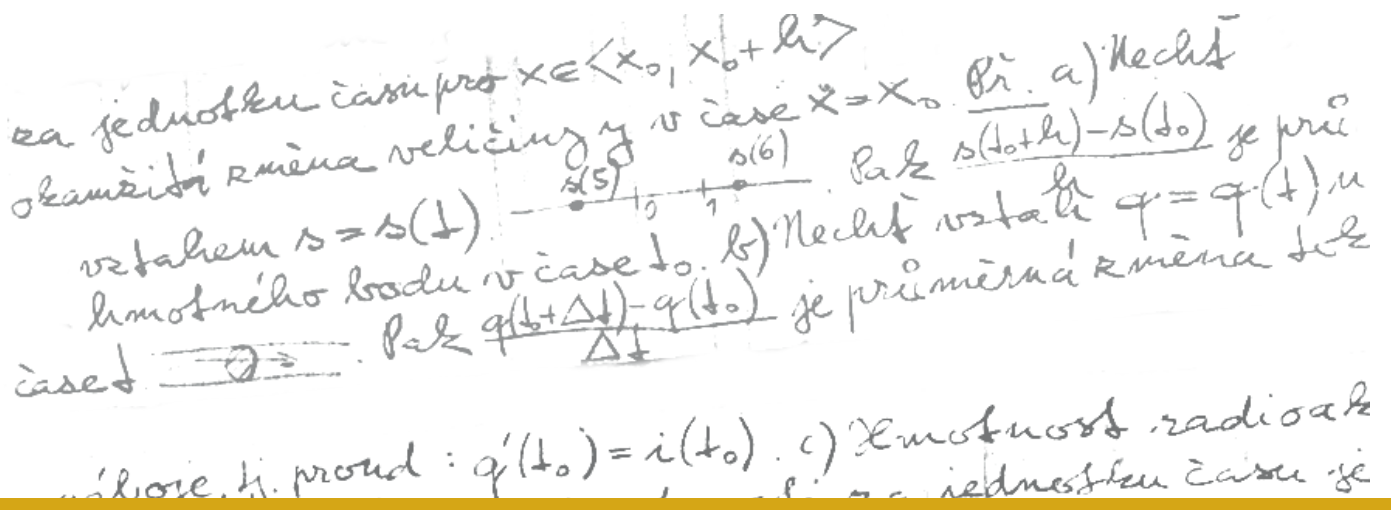 za jednotku času pro x∈<x₀, x₀+h>
okamžitá změna veličiny y v čase x=x₀. Př. a) Nechť
vztahem s=s(t). s(5) 0 1 s(6). Pak (s(t₀+h)-s(t₀))/h je prů
hmotného bodu v čase t₀. b) Nechť vztah q=q(t) u
čase t. Pak (q(t₀+Δt)-q(t₀))/Δt je průměrná změna tok
náboje, tj. proud: q'(t₀)=i(t₀). c) Hmotnost radioak
za jednotku času je